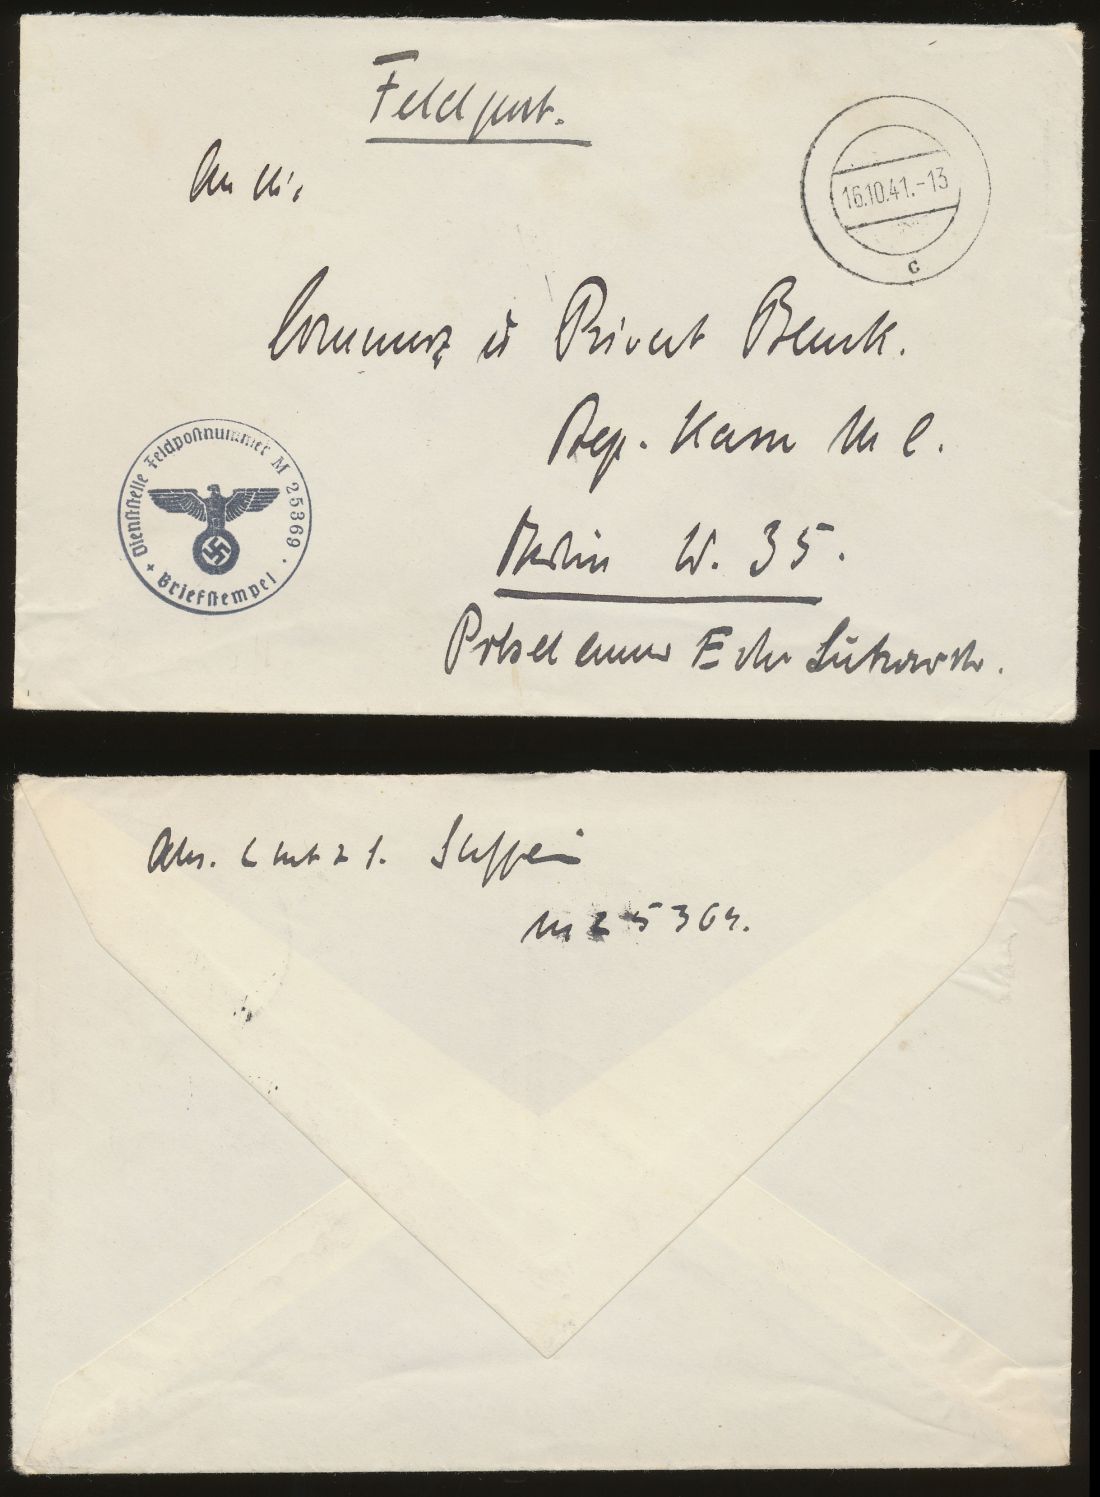 Feldpost.
An die
16.10.41.-13
c
Commerz u Privat Bank.
Dep. Kasse M C.
Dienststelle Feldpostnummer M 25369 · Briefstempel +
Berlin W. 35.
Potsdamer Ecke Lützowstr.
Abs.
M 25369.